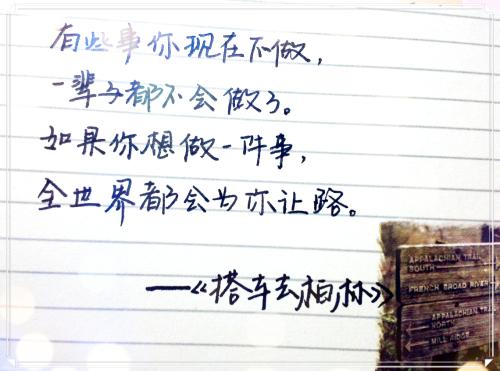 有些事你现在不做,
一辈子都不会做了。
如果你想做一件事,
全世界都会为你让路。
——《搭车去柏林》
APPALACHIAN TRAIL
SOUTH
FRENCH BROAD RIVER
APPALACHIAN TRAIL
NORTH
MILL RIDGE